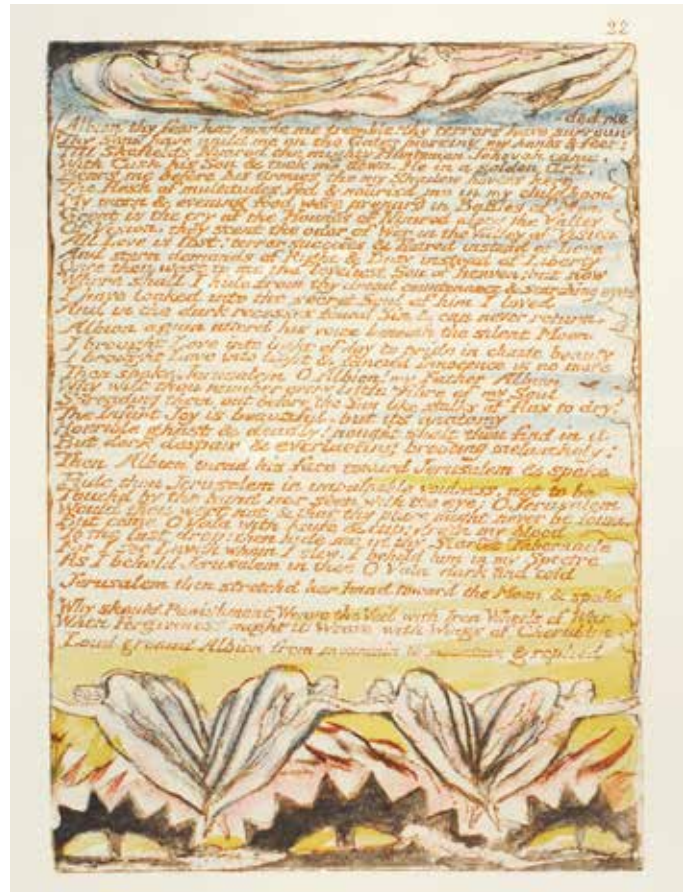 22
ded me
Albion thy fear has made me tremble; thy terrors have surroun
Thy Sons have naild me on the Gates piercing my hands & feet:
Till Skofields Nimrod the mighty Huntsman Jehovah came,
With Cush his Son & took me down. He in a golden Ark,
Bears me before his Armies tho my shadow hovers here
The flesh of multitudes fed & nourisd me in my childhood
My morn & evening food were prepard in Battles of Men
Great is the cry of the Hounds of Nimrod along the Valley
Of Vision, they scent the odor of War in the Valley of Vision.
All Love is lost! terror succeeds & Hatred instead of Love
And stern demands of Right & Duty instead of Liberty
Once thou wast to me the loveliest Son of heaven; but now
Where shall I hide from thy dread countenance & searching eyes
I have looked into the secret Soul of him I loved
And in the dark recesses found Sin & can never return.
Albion again utterd his voice beneath the silent Moon
I brought Love into light of day to pride in chaste beauty
I brought Love into light & fancied Innocence is no more
Then spoke Jerusalem O Albion! my Father Albion
Why wilt thou number every little fibre of my Soul
Spreading them out before the Sun like stalks of flax to dry?
The Infant Joy is beautiful, but its anatomy
Horrible ghast & deadly! nought shalt thou find in it
But dark despair & everlasting brooding melancholy!
Then Albion turnd his face toward Jerusalem & spoke
Hide thou Jerusalem in impalpable voidness, not to be
Touchd by the hand nor seen with the eye: O Jerusalem
Would thou wert not & that thy place might never be found
But come O Vala with knife & cup: drain my blood
To the last drop! then hide me in thy Scarlet Tabernacle
For I see Luvah whom I slew. I behold him in my Spectre
As I behold Jerusalem in thee O Vala dark and cold
Jerusalem then stretchd her hand toward the Moon & spoke
Why should Punishment Weave the Veil with Iron Wheels of War
When Forgiveness might it Weave with Wings of Cherubim
Loud groand Albion from mountain to mountain & replied